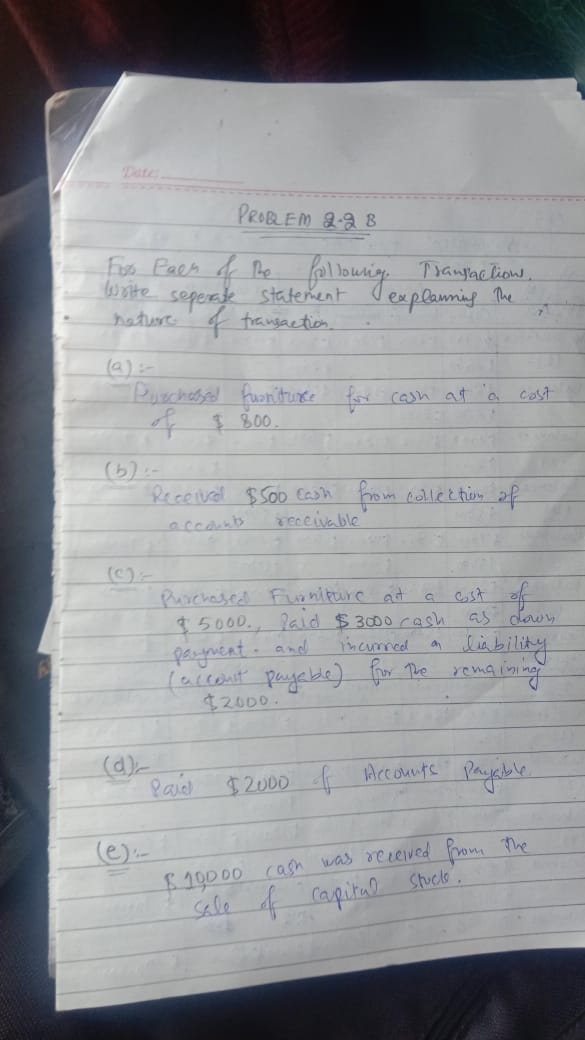 Date:
PROBLEM 2.2 B
For Each of the following Transactions.
Write seperate statement explanning the
nature of transaction.
(a) :-
Purchased furniture for cash at a cost
of $ 800.
(b) :-
Received $500 cash from collection of
accounts receivable
(c) :-
Purchased Furniture at a cost of
$ 5000., Paid $3000 cash as down
payment. and incurred a liability
(account payable) for the remaining
$2000.
(d) :-
Paid $2000 of Accounts Payable.
(e) :-
$ 10,000 cash was received from the
sale of capital stock.